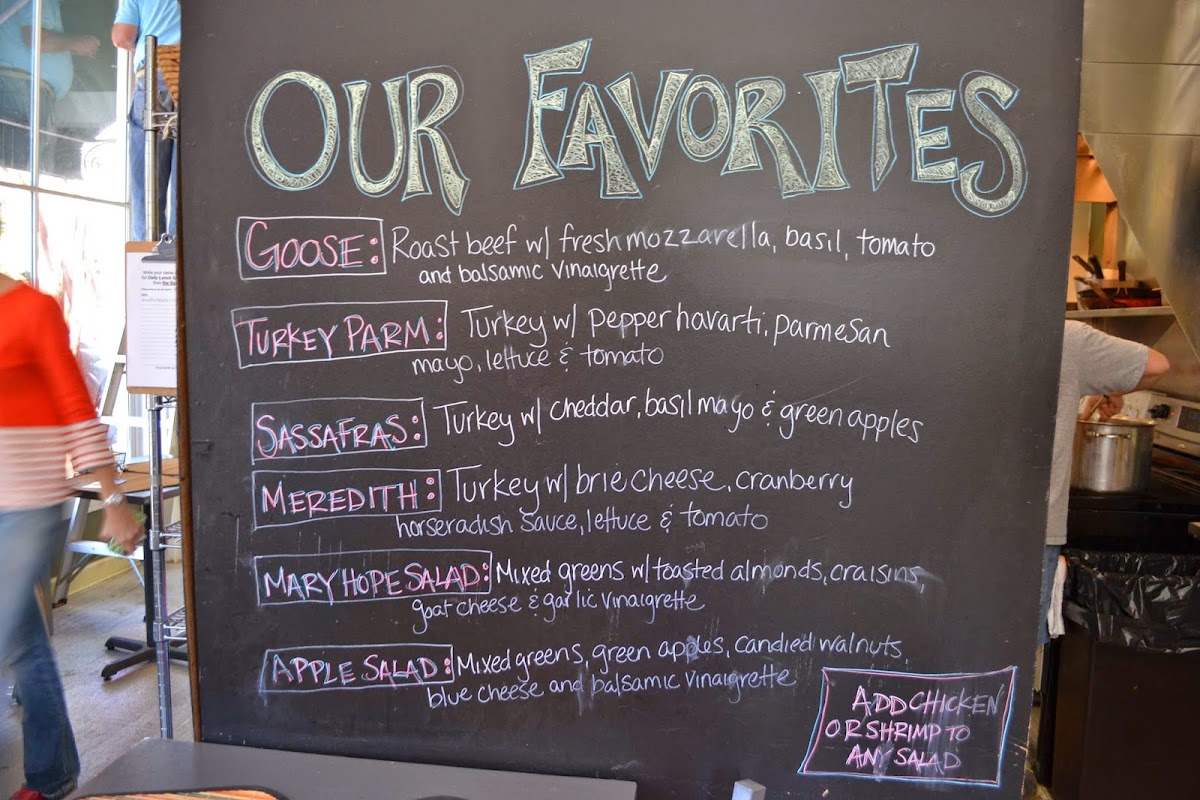 OUR FAVORITES
GOOSE: Roast beef w/ fresh mozzarella, basil, tomato
and balsamic vinaigrette
TURKEY PARM: Turkey w/ pepper havarti, parmesan
mayo, lettuce & tomato
SASSAFRAS: Turkey w/ cheddar, basil mayo & green apples
MEREDITH: Turkey w/ brie cheese, cranberry
horseradish sauce, lettuce & tomato
MARY HOPE SALAD: Mixed greens w/ toasted almonds, craisins,
goat cheese & garlic vinaigrette
APPLE SALAD: Mixed greens, green apples, candied walnuts
blue cheese and balsamic vinaigrette
ADD CHICKEN
OR SHRIMP TO
ANY SALAD